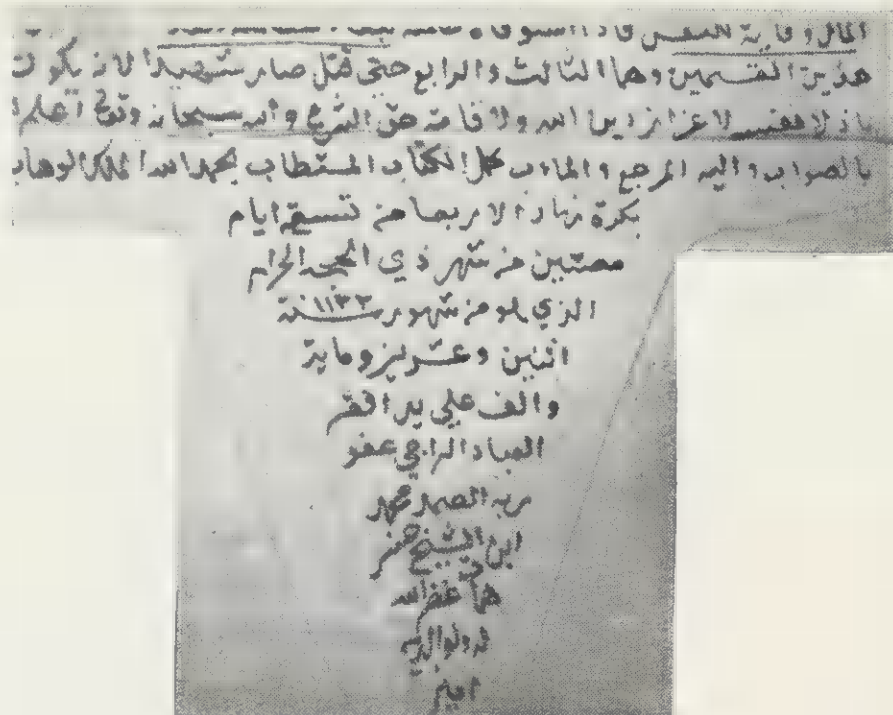 المال وقاية للنفس
هذين القسمين وهما الثالث والرابع حتى قتل صار شهيدا لانه يكون
باذلا نفسه لاعزاز دين الله ولاقامة حق الشرع والله سبحانه وتعالى اعلم
بالصواب واليه المرجع والماب كمل الكتاب المستطاب بحمد الله الملك الوهاب
بكرة نهار الاربعا من تسعة ايام
مضين من شهر ذي الحجة الحرام
الذي هو من شهور سنة ١١٣٢
اثنين وعشرين وماية
والف على يد افقر
العباد الراجي عفو
ربه الصمد محمد
ابن الشيخ
غفر الله
له ولوالديه
امين